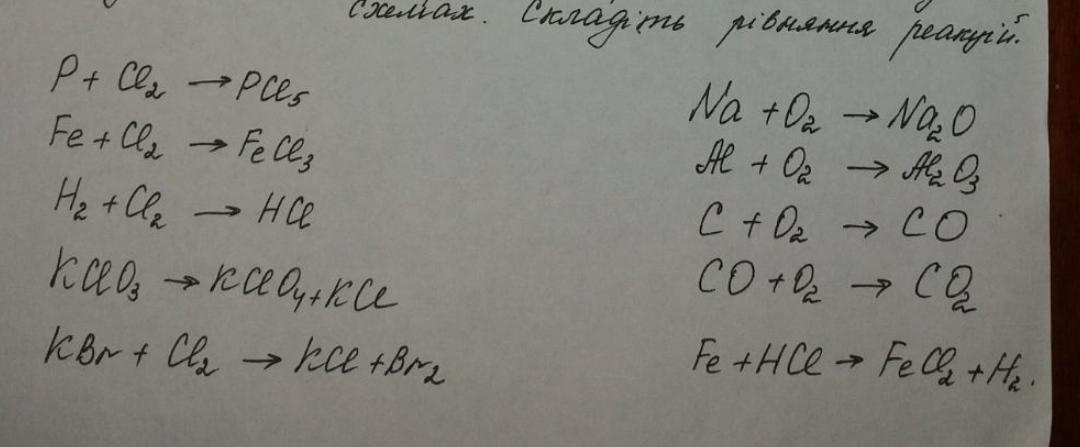 схемах. Складіть рівняння реакцій.
P + Cl₂ → PCl₅
Fe + Cl₂ → FeCl₃
H₂ + Cl₂ → HCl
KClO₃ → KClO₄ + KCl
KBr + Cl₂ → KCl + Br₂
Na + O₂ → Na₂O
Al + O₂ → Al₂O₃
C + O₂ → CO
CO + O₂ → CO₂
Fe + HCl → FeCl₂ + H₂.